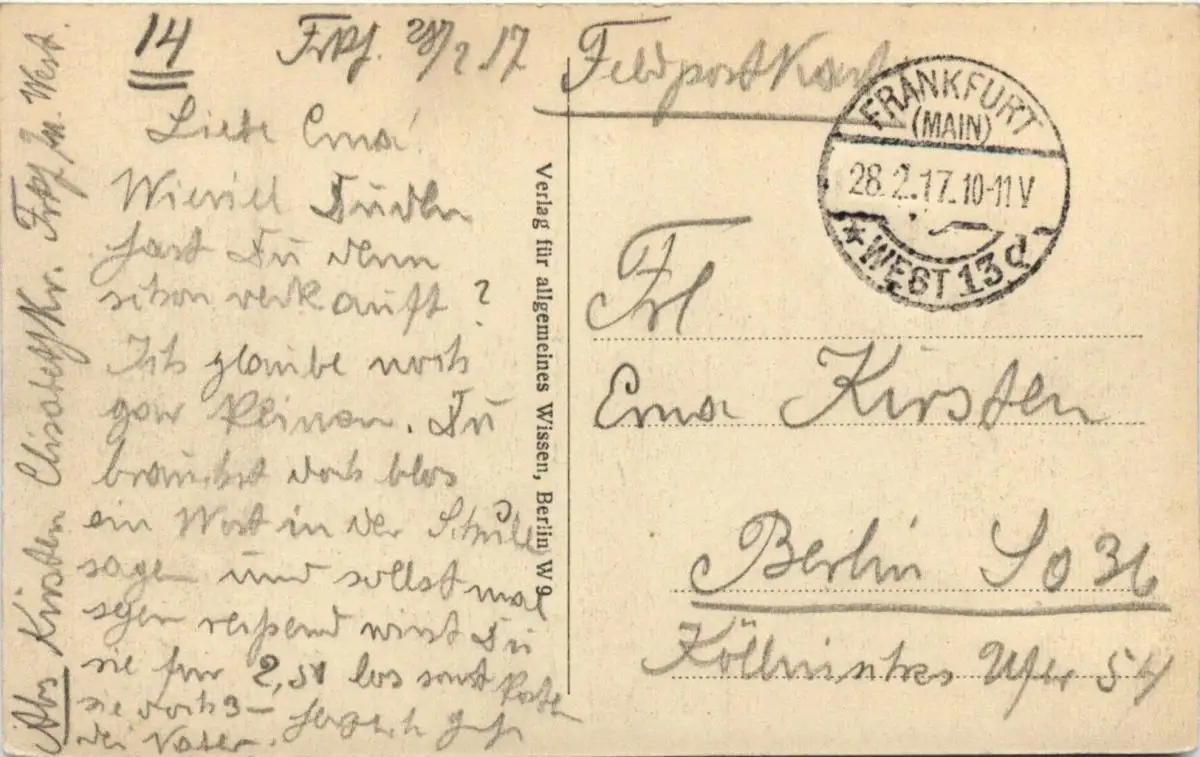 14 Frkf. 28/2 17
Liebe Erna!
Wieviel
hast Du denn
schon verkauft?
Ich glaube noch
gar keinen. Du
brauchst doch blos
ein Wort in der Schule
sagen und sollst mal
sehen reißend wirst Du
sie für 2,50 los sonst kosten
sie doch 3–
dein Vater.
Abs Kirsten Elisabeth Kr. Frkf M. West.
Verlag für allgemeines Wissen, Berlin W 9
Feldpostkarte
FRANKFURT
(MAIN)
28.2.17.10-11V
*WEST 13 d
Frl
Erna Kirsten
Berlin SO 36
Köllnisches Ufer 54